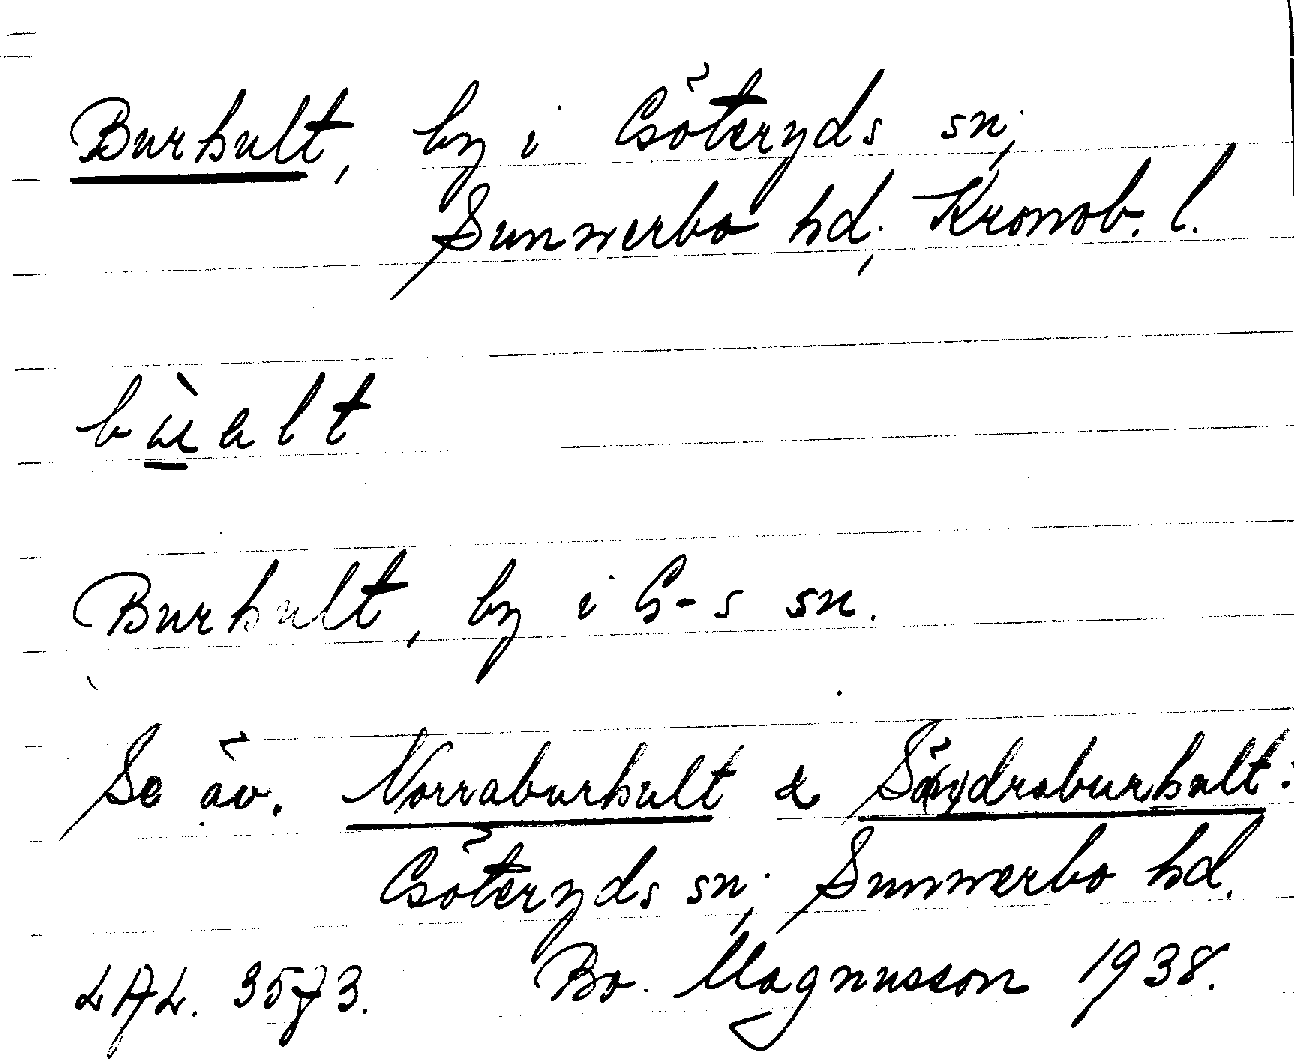 Burhult, by i Göteryds sn;
Sunnerbo hd; Kronob. l.
bùalt
Burhult, by i G-s sn.
Se äv. Norraburhult & Södraburhult:
Göteryds sn; Sunnerbo hd.
LAL. 3573. Bo. Magnusson 1938.